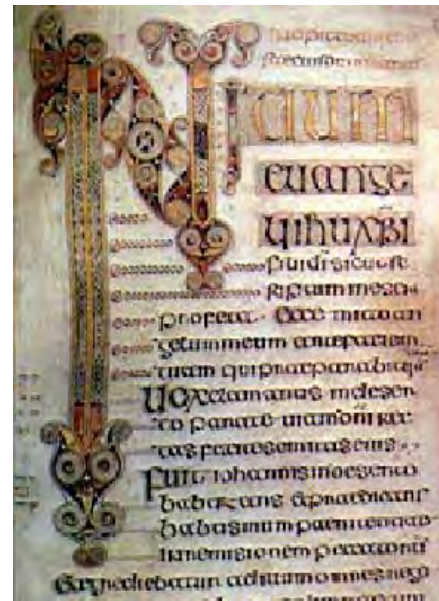 INItium
euange
lii ihu xpi
fili di sicut
profeta · Ecce mitto an
gelum meum ante faciem
tuam qui praeparabit
Uox clamantis in deser
to parate uiam dni rec
tas facite semitas eius
Fuit iohannis in deserto
babtizans et praedicans
babtismum paenitentiae
in remisionem
Et egrediebatur ad illum omnis regio